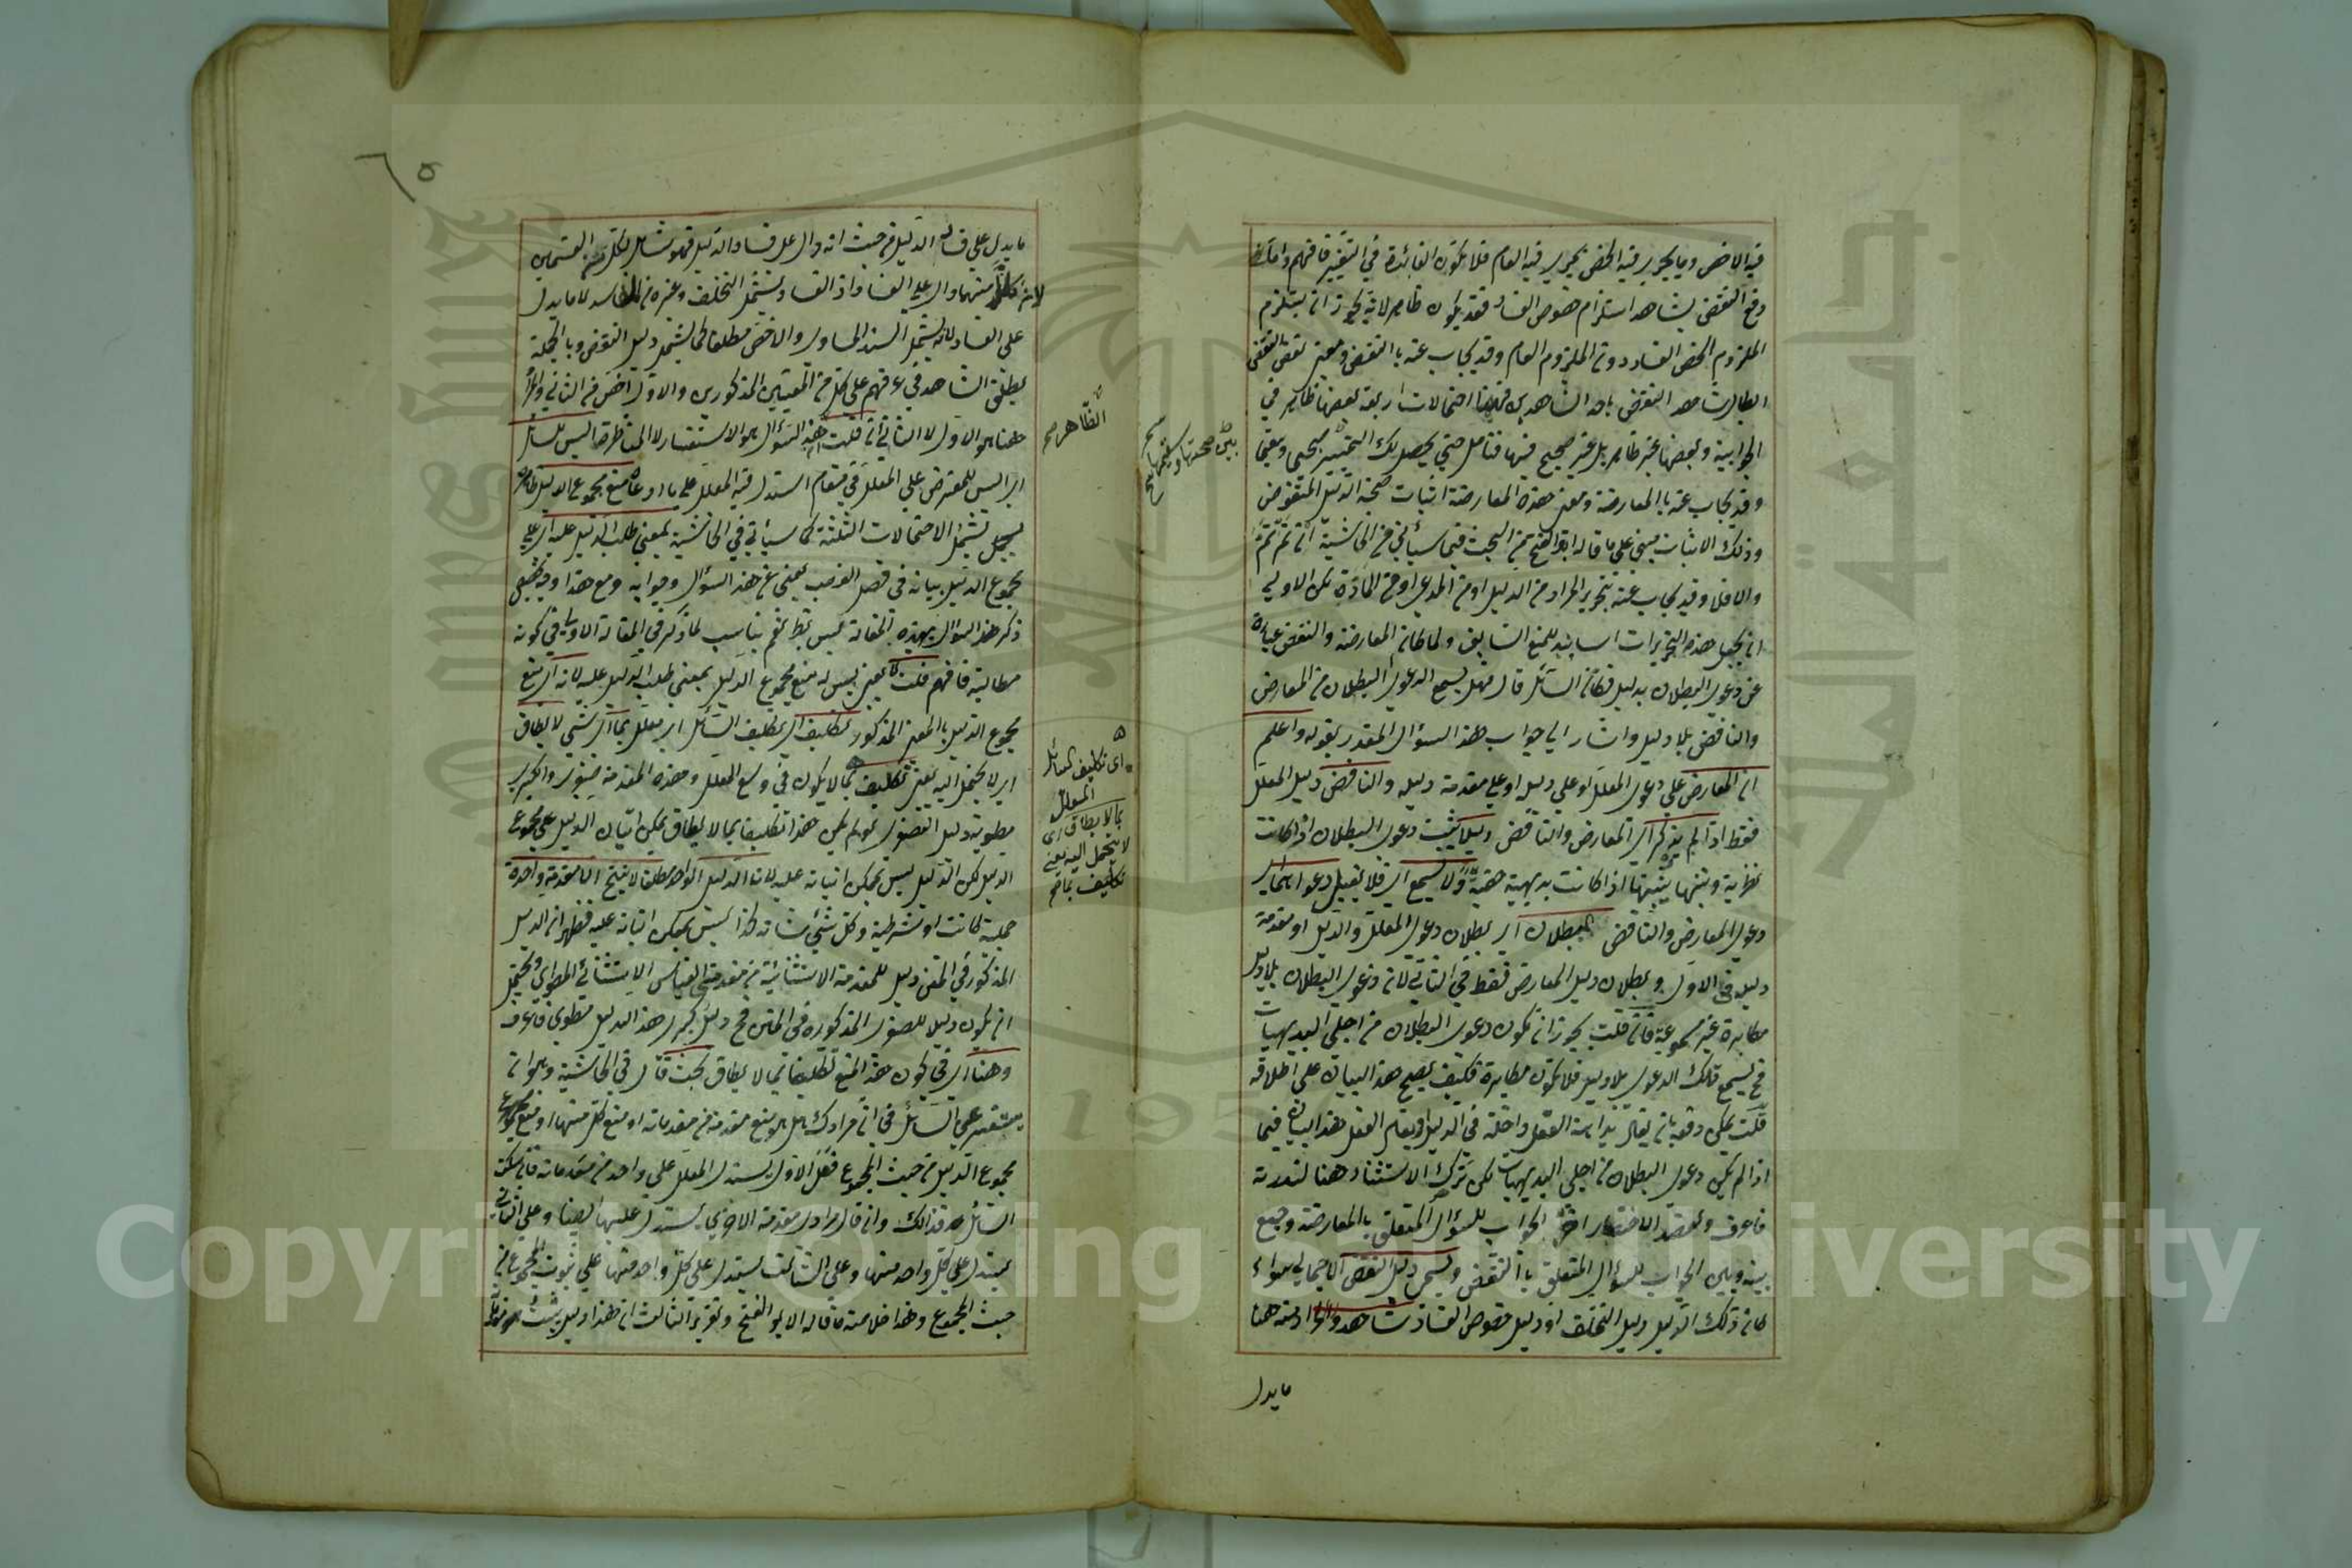 فيه الاخص وما يجري فيه الاخص يجري فيه العام فلا تكون الفائدة في التقييد فافهم واما
دفع النقض بشاهد استلزام خصوص الفساد فقد يكون ظاهر لانه يجوز ان يستلزم
الملزوم الاخص الفساد دون الملزوم العام وقد يجاب عنه بالنقض ومعنى نقض النقض
ابطال شاهد النقض باحد الشاهدين فههنا احتمالات اربعة بعضها ظاهر في
الجوابية وبعضها غير ظاهر بل غير صحيح فيها فتأمل حتى يحصل لك التمييز
وقد يجاب عنه بالمعارضة ومعنى هذه المعارضة اثبات صحة الدليل المنقوض
وذلك الاثبات مبني على ما قاله ابو الفتح من البحث فيما سيأتي في الحاشية ان تم تم
والا فلا وقد يجاب عنه بتحرير المراد من الدليل او من المدعى او من المادة لكن الاولى
ان يجعل هذه التحريرات اسانيد للمنع السابق ولما كان المعارضة والنقض عبارة
عن دعوى البطلان بدليل فكان السائل قال فهل يسمع الدعوى البطلان من المعارض
والناقض بلا دليل واشار الى جواب هذا السؤال المقدر بقوله واعلم
ان المعارض على دعوى المعلل او على دليله او على مقدمة دليله والناقض دليل المعلل
فقط اذا لم يذكر اي المعارض والناقض دليلا يثبت دعوى البطلان اذا كانت
نظرية وتنبيها ينبهها اذا كانت بديهية خفية لا يسمع اي فلا يقبل دعواهما اي
دعوى المعارض والناقض البطلان اي بطلان دعوى المعلل والدليل او مقدمة
دليله في الاول وبطلان دليل المعارض فقط في الثاني لان دعوى البطلان بلا دليل
مكابرة غير مسموعة فان قلت يجوز ان تكون دعوى البطلان من اجلى البديهيات
فح يسمع تلك الدعوى بلا دليل فلا تكون مكابرة فكيف يصح هذا البيان على اطلاقه
قلت يمكن دفعه بان يقال بداهة العقل داخلة في الدليل او يقال هذا البيان فيما
اذا لم يكن دعوى البطلان من اجلى البديهيات لكن ترك الاستثناء هنا لندرته
فاعرف ولقصد الاختصار اخر الجواب للسؤال المتعلق بالمعارضة وجمع
بينه وبين الجواب للسؤال المتعلق بالنقض ويسمى دليل النقض الاجمالي سواء
كان ذلك الدليل دليل التخلف او دليل خصوص الفساد شاهدا والمراد منه هنا
مايدل
بين صحتها وسقيمها صح
ما يدل على فساد الدليل من حيث انه دال على فساد الدليل فهو شامل لكل من القسمين
لان كلا منهما دال على الفساد اذ الفساد يشتمل التخلف وغيره من المفاسد لا ما يدل
على الفساد لانه يشتمل السند المساوي والاخص مطلقا كما يشتمل دليل النقض وبالجملة
يطلق الشاهد في عرفهم على كل من المعنيين المذكورين والاول اخص من الثاني والمراد
ههنا هو الاول لا الثاني ان قلت هذه السؤال هو الاستفسار لا المناظرة اليس للسائل
اي اليس للمعترض على المعلل في مقام استدل فيه المعلل على ما ادعاه منع مجموع الدليل
يشتمل الاحتمالات الثلثة كما سيأتي في الحاشية بمعنى طلب الدليل عليه اي على
مجموع الدليل بيانه في فصل الغصب يغني عن هذا السؤال وجوابه ومع هذا
ذكر هذا السؤال بهذه المقالة ليس بظ نعم يناسب لما ذكر في المقالة الاولى في كونه
مطالبة فافهم قلت لا يعني ليس له منع مجموع الدليل بمعنى طلب الدليل عليه لانه اي منع
مجموع الدليل بالمعنى المذكور تكليف اي تكليف السائل اي معلل بما اي شيء لا يطاق
اي لا يحتمل اليه يعني تكليف بما لا يكون في وسع المعلل وهذه المقدمة صغرى والكبرى
مطوية دليل الصغرى لو لم يكن هذا تكليفا بما لا يطاق يمكن اتيان الدليل على مجموع
الدليل لكن الدليل ليس يمكن اتيانه عليه لان الدليل الواحد مطلقا لا ينتج الا مقدمة واحدة
حملية كانت او شرطية وكل شيء شانه كذا ليس يمكن اتيانه عليه فظهر ان الدليل
المذكور في المتن دليل للمقدمة الاستثنائية من مقدمتي القياس الاستثنائي المطوي ويحتمل
ان يكون دليلا للصغرى المذكورة في المتن فح دليل كبرى هذا الدليل مطوي فاعرفه
وههنا اي في كون هذا المنع تكليفا بما لا يطاق بحث قال في الحاشية وهو ان
يستفسر عن السائل في ان مرادك هل هو منع مقدمة من مقدماته او منع كل منها او منع
مجموع الدليل من حيث المجموع فعلى الاول يستدل المعلل على واحد من مقدماته فان سكت
السائل فذالك وان قال مرادي مقدمة الاخرى يستدل عليها ايضا وعلى الثاني
يستدل على كل واحد منها وعلى الثالث يستدل على كل واحد منها على ثبوت المجموع من
حيث المجموع وهذا خلاصة ما قاله ابو الفتح وتقرير الثالث ان هذا دليل يثبت
الظاهر صح
اي تكليف السائل
المعلل
بما لا يطاق اي
لا يتحمل اليه يعني
تكليف بما صح
٥
Copyright © King Saud University
جامعة الملك سعود
King Saud University
195